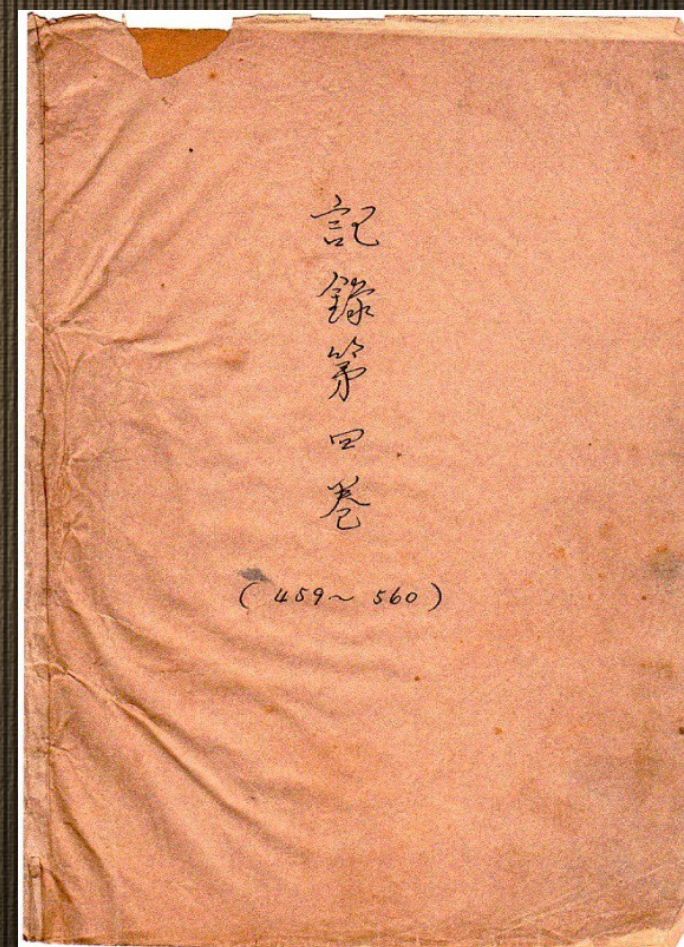 記録第四巻
(459~560)